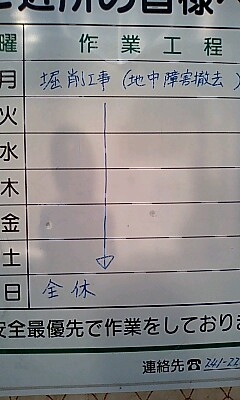 近所の皆様へ
曜 作業工程
月 堀削工事（地中障害撤去）
火
水
木
金
土
日 全休
安全最優先で作業をしており
連絡先☎241-22